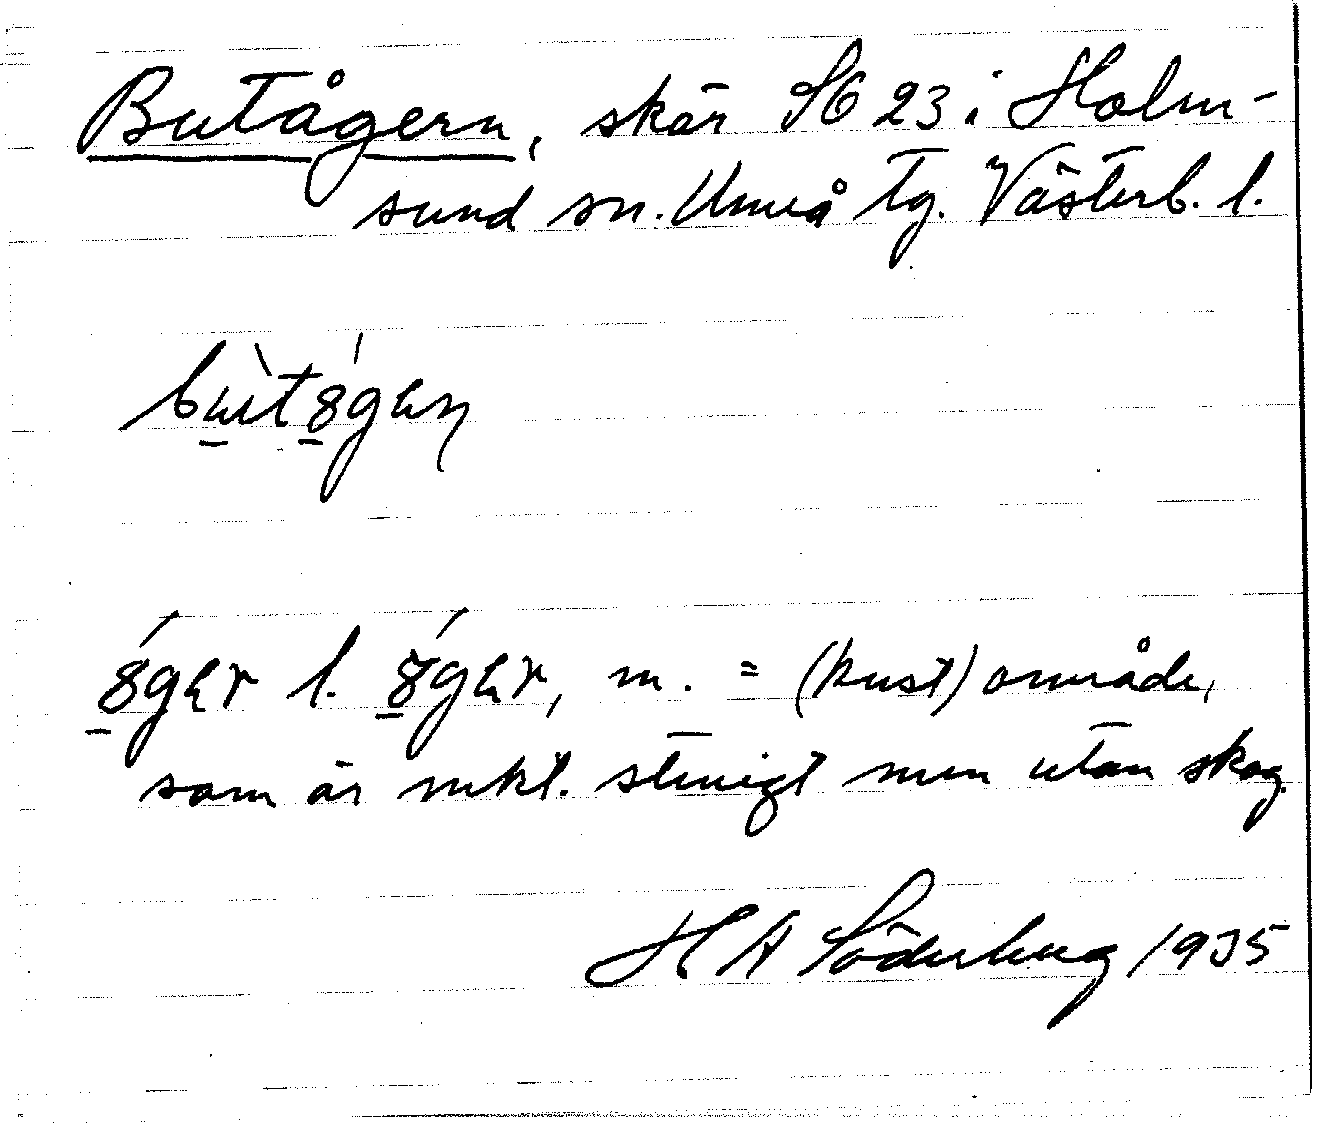 Butågern, skär S6 23 i Holm-
sund sn. Umeå tg. Västerb. l.
l. m. = (kust)område,
som är mkt. stenigt men utan skog.
H A Söderberg 1935